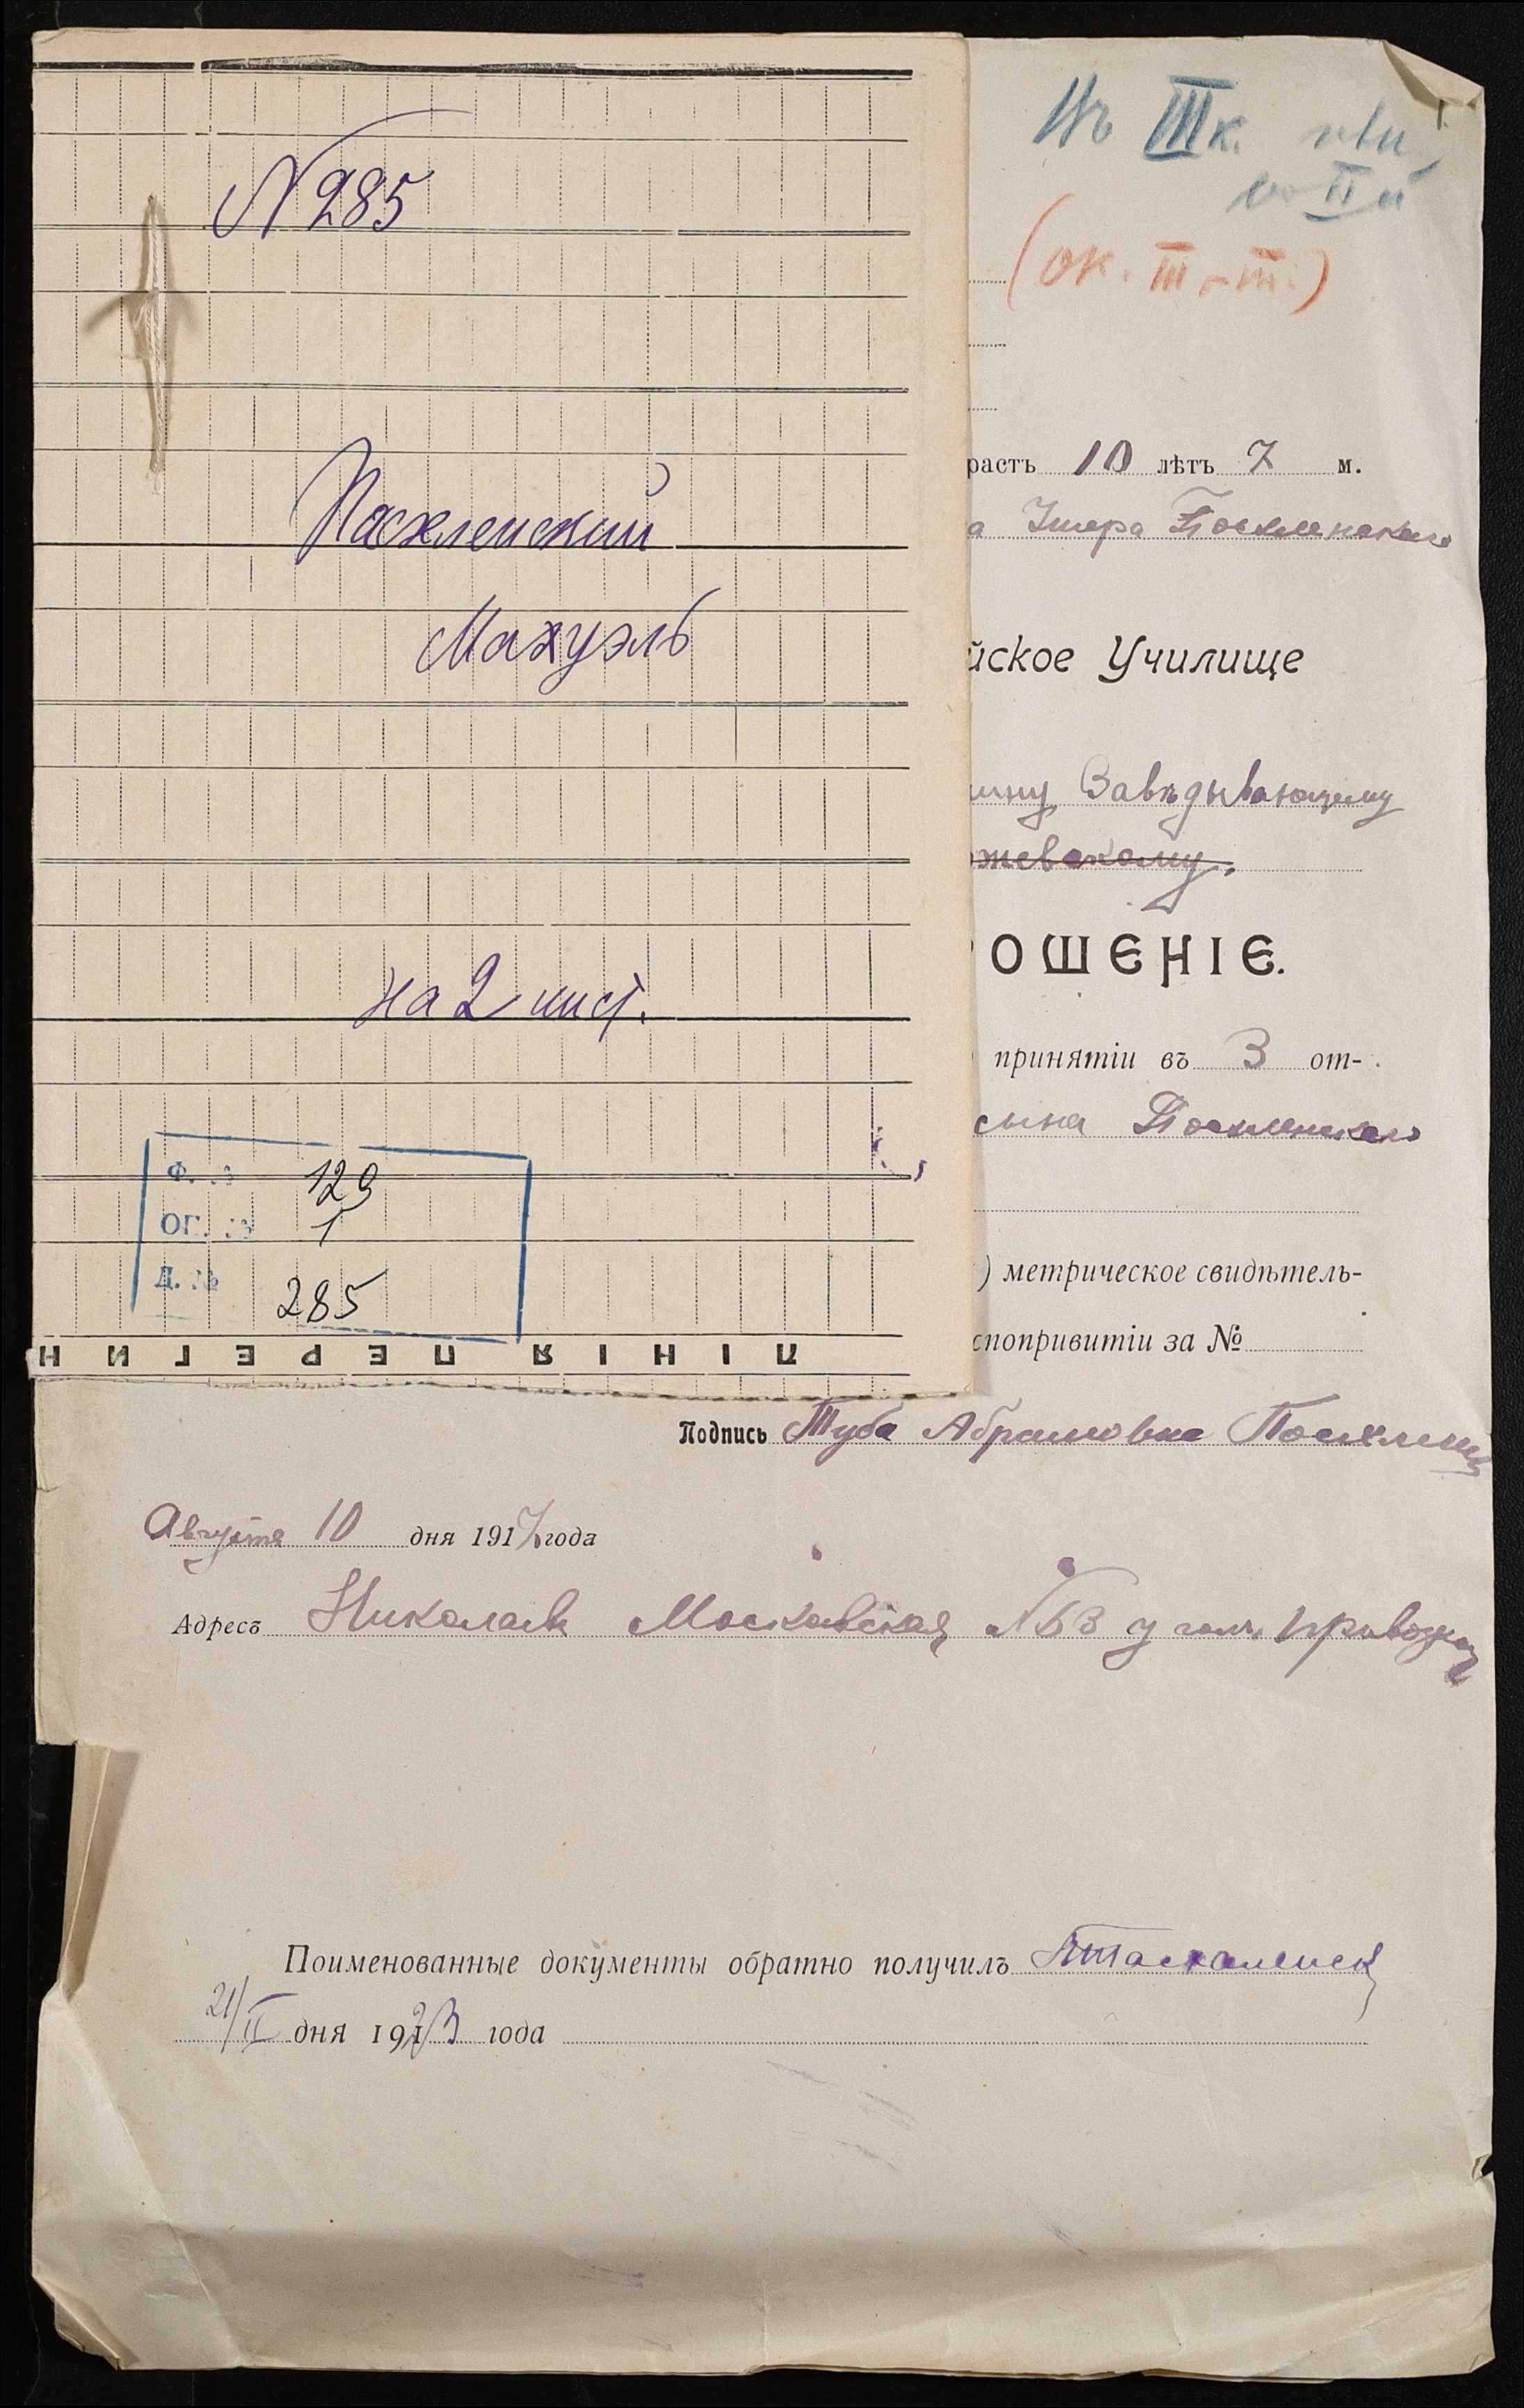 N 285
Пасхленский
Мануэль
на 2 лист.
Ф. № 129
ОП. № 1
Д. № 285
ЛИНІЯ ПЕРЕГИН
Въ III к.
II
(ок. III
растъ 10 лѣтъ 7 м.
а Пасхленскаго
йское Училище
ину Завѣдывающему
жевскому.
ОШЕНІЕ.
принятіи въ 3 от-
сына Пасхленскаго
) метрическое свидѣтель-
спопривитіи за №
Подпись Туба Абрамовна Пасхленск
Августа 10 дня 1917 года
Адресъ Николаевъ Московская №
Поименованные документы обратно получилъ
21/II дня 1923 года